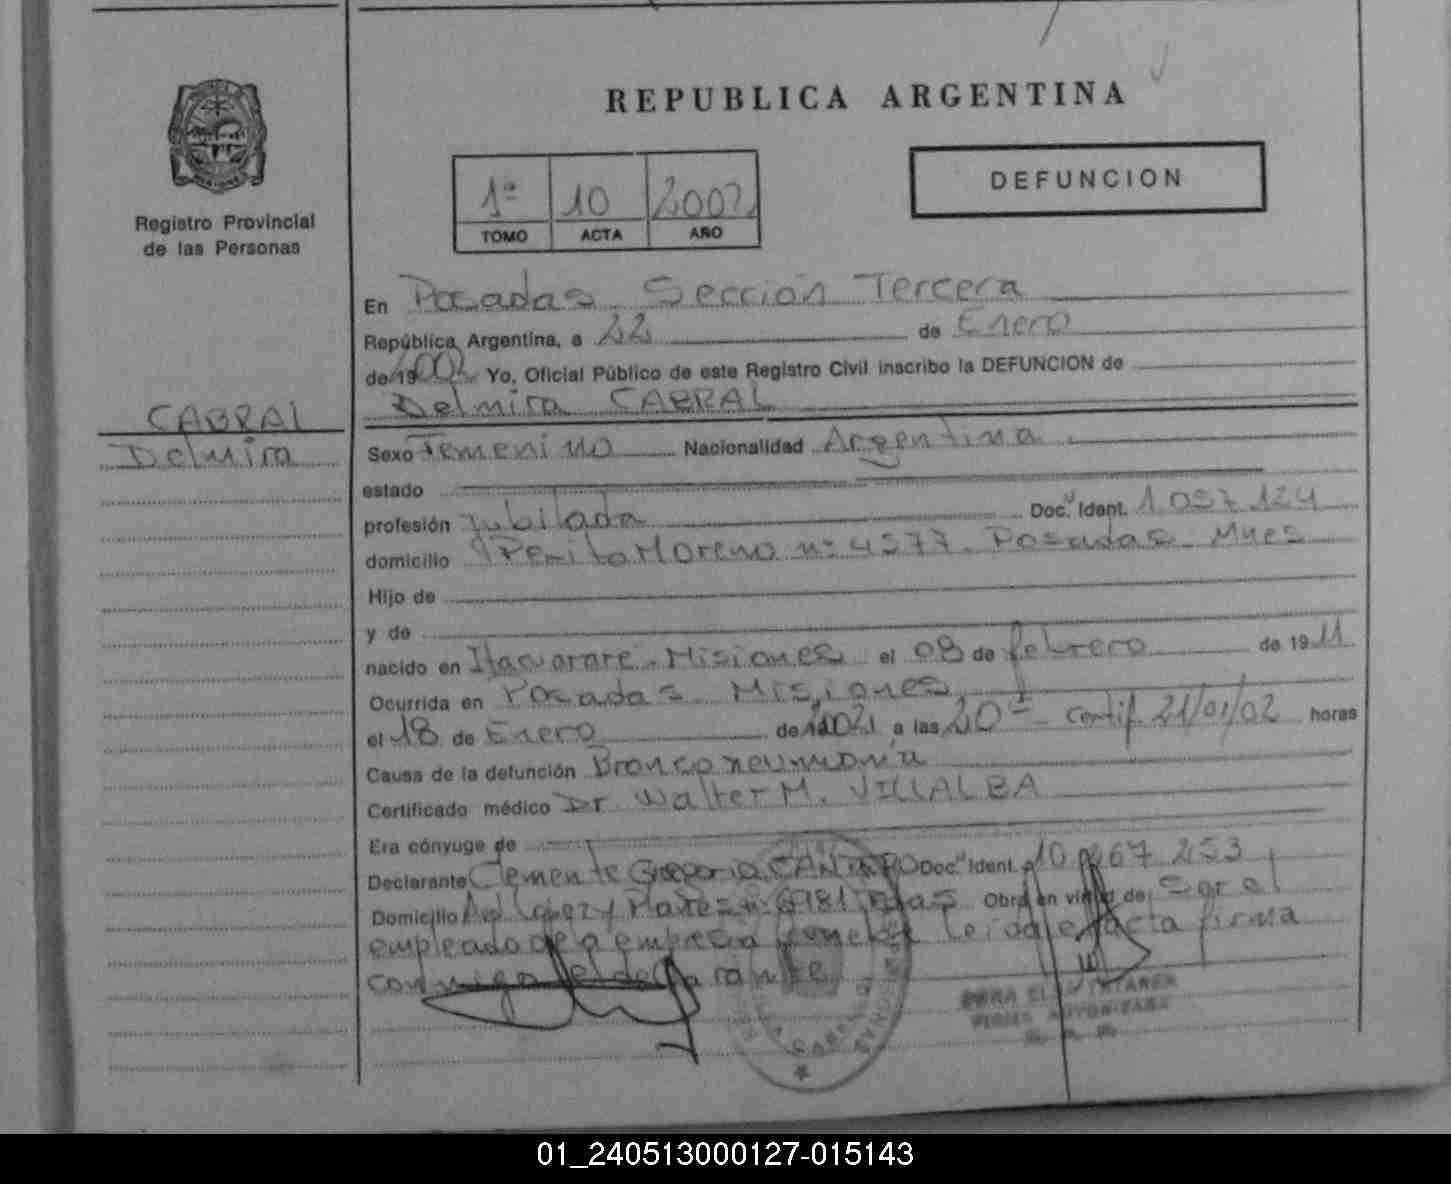 REPUBLICA ARGENTINA
DEFUNCION
1ª 10 2002
TOMO ACTA AÑO
Registro Provincial
de las Personas
CABRAL
Delmira
En Posadas Sección Tercera
República Argentina, a 22 de Enero
de 2002 Yo, Oficial Público de este Registro Civil inscribo la DEFUNCION de
Delmira CABRAL
Sexo Femenino Nacionalidad Argentina
estado
profesión Jubilada Doc. Ident. 1.057.124
domicilio Perito Moreno nº 4577 Posadas Mnes
Hijo de
y de
nacido en Itacuararé. Misiones el 08 de febrero de 1911
Ocurrida en Posadas Misiones
el 18 de Enero de 2002 a las 20 = Certif. 21/01/02 horas
Causa de la defunción Bronconeumonía
Certificado médico Dr Walter M. VILLALBA
Era cónyuge de
Declarante Clemente Gregorio CANTERO Doc. Ident. 10.267.253
Domicilio Avd Lopez y Planes nº 6981 Pdas Obra en virtud de Ser el
empleado de a empresa Leida el acta firma
conmigo el declarante.
01_240513000127-015143